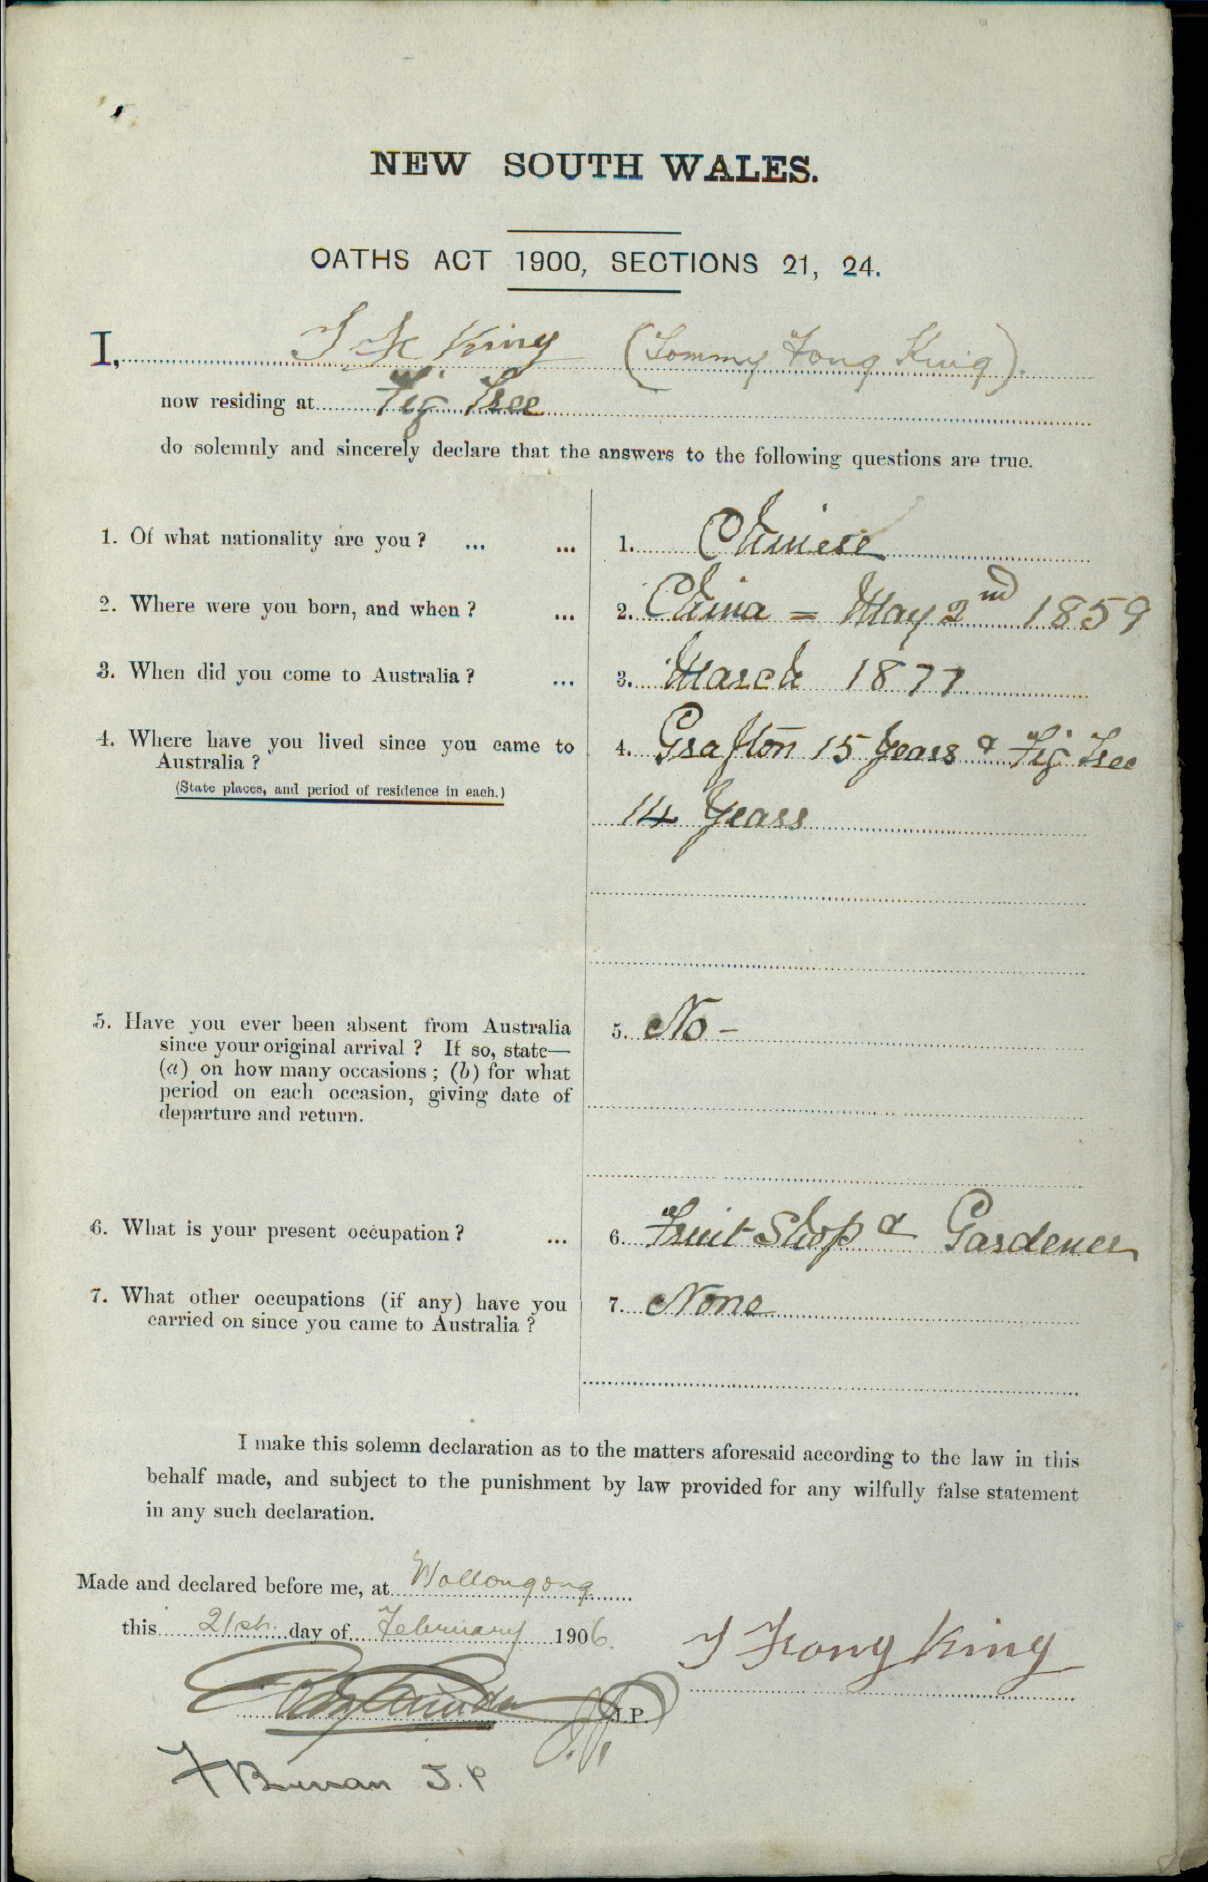 NEW SOUTH WALES.
OATHS ACT 1900, SECTIONS 21, 24.
I, T K King (Tommy Fong King).
now residing at Fig Tree
do solemnly and sincerely declare that the answers to the following questions are true.
1. Of what nationality are you? ... ... 1. Chinese
2. Where were you born, and when? ... 2. China = May 2nd 1859
3. When did you come to Australia? ... 3. March 1877
4. Where have you lived since you came to 4. Grafton 15 years & Fig Tree
Australia?
(State places, and period of residence in each.)
14 years
5. Have you ever been absent from Australia 5. No -
since your original arrival? If so, state—
(a) on how many occasions; (b) for what
period on each occasion, giving date of
departure and return.
6. What is your present occupation? ... 6. Fruit Shop & Gardener
7. What other occupations (if any) have you 7. None
carried on since you came to Australia?
I make this solemn declaration as to the matters aforesaid according to the law in this
behalf made, and subject to the punishment by law provided for any wilfully false statement
in any such declaration.
Made and declared before me, at Wollongong
this 21st day of February 1906.
T Fong King
J.P.
J.P.